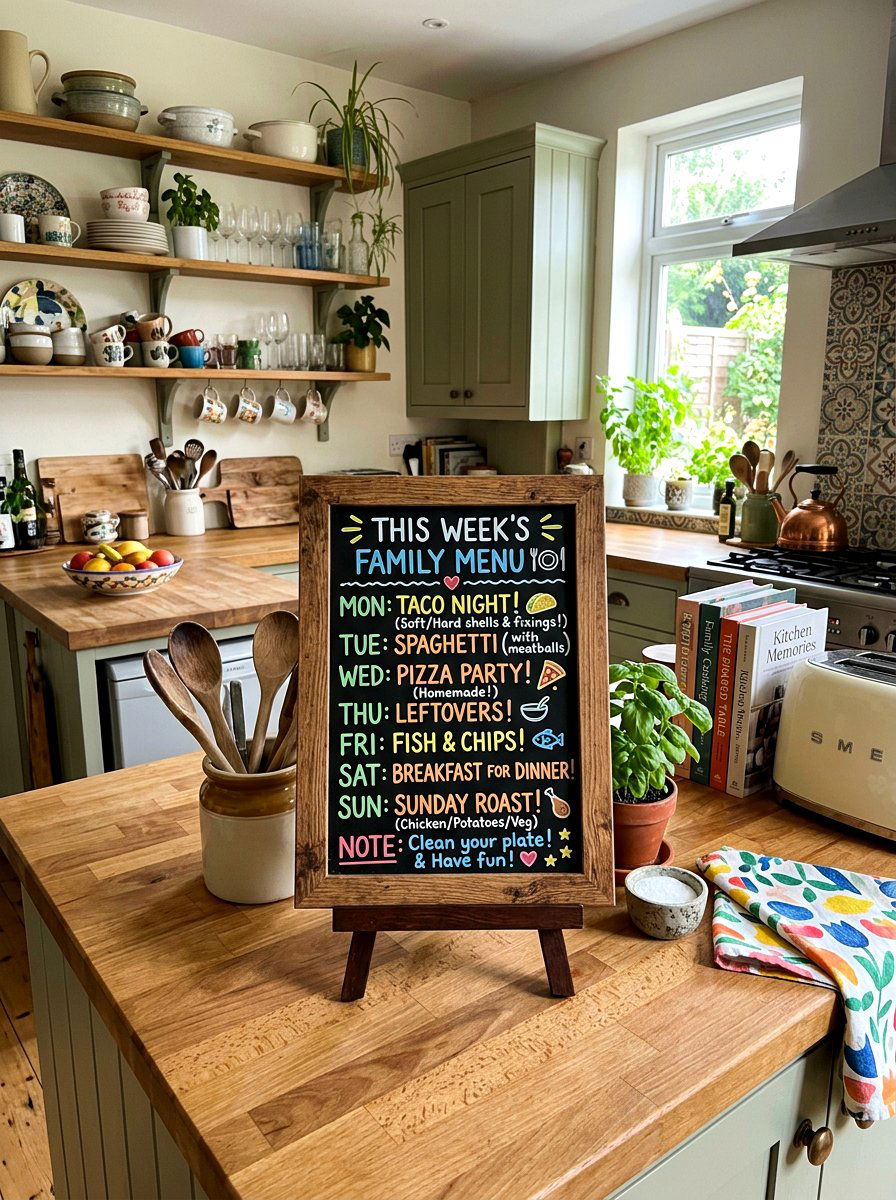 THIS WEEK'S
FAMILY MENU
MON: TACO NIGHT!
(Soft/Hard shells & fixings!)
TUE: SPAGHETTI (with meatballs)
WED: PIZZA PARTY!
(Homemade!)
THU: LEFTOVERS!
FRI: FISH & CHIPS!
SAT: BREAKFAST FOR DINNER!
SUN: SUNDAY ROAST!
(Chicken/Potatoes/Veg)
NOTE: Clean your plate!
& Have fun!
Kitchen
Memories
SME